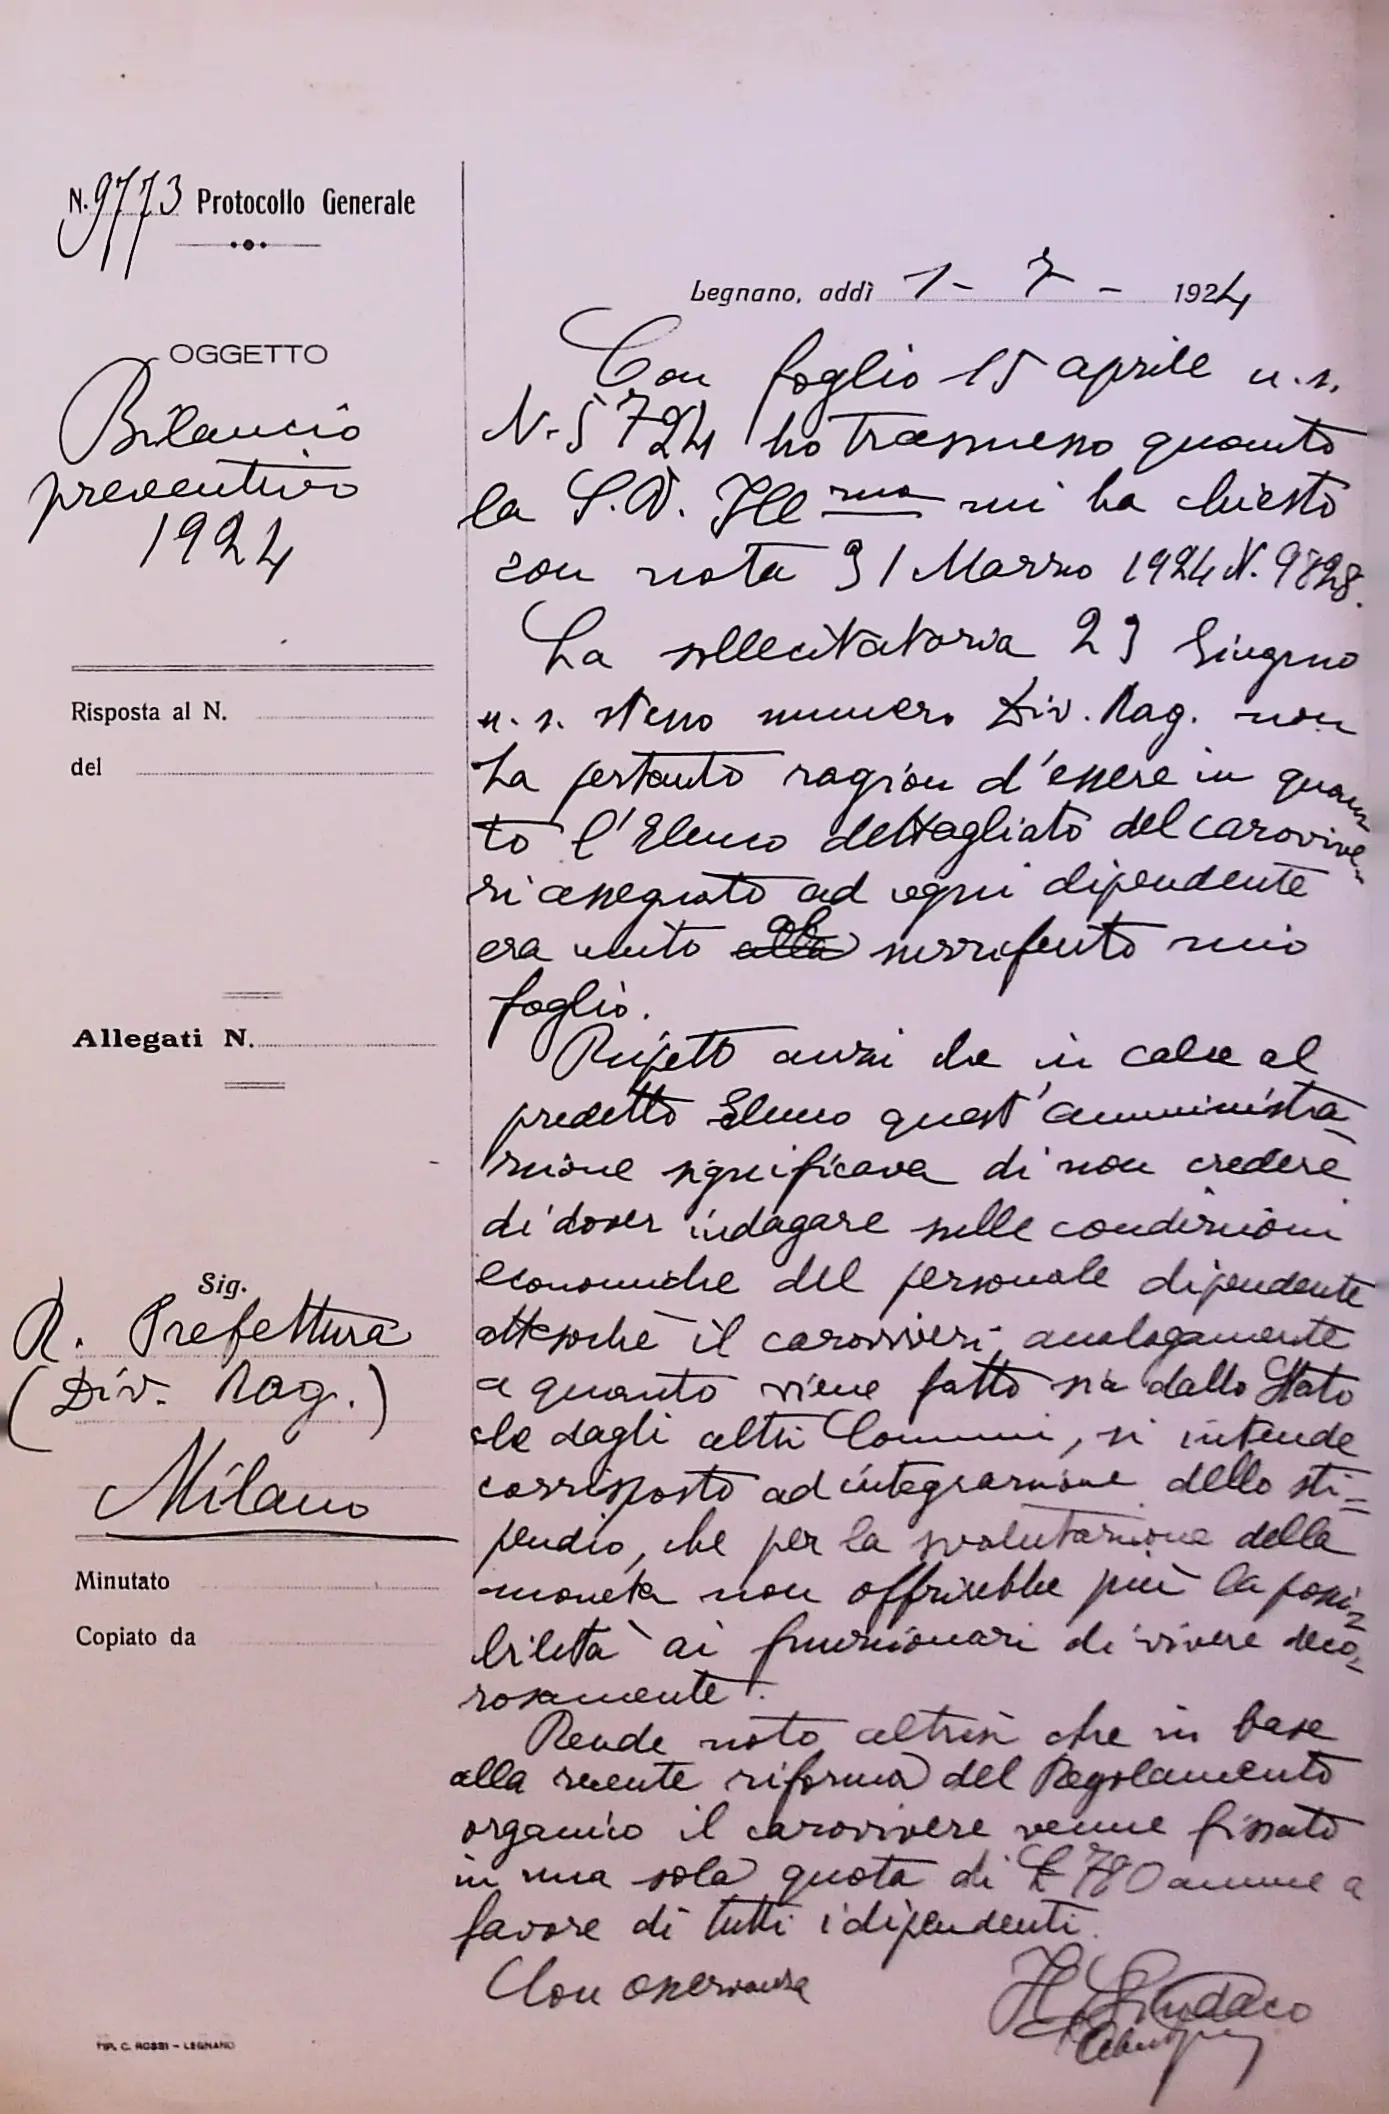 N. 9773 Protocollo Generale
OGGETTO
Bilancio
preventivo
1924
Risposta al N.
del
Allegati N.
Sig.
R. Prefettura
(Div. Rag.)
Milano
Minutato
Copiato da
TIP. C. ROSSI - LEGNANO
Legnano, addì 1 - 7 - 1924
Con foglio 15 aprile u.s.
N. 5724 ho trasmesso quanto
la S.V. Ill ma mi ha chiesto
con nota 31 Marzo 1924 N. 9828.
La sollecitatoria 23 Giugno
u.s. stesso numero Div. Rag. non
ha pertanto ragion d'essere in quan
to l'Elenco dettagliato del carovive-
ri assegnato ad ogni dipendente
era unito alla al surriferito mio
foglio.
Ripeto anzi che in calce al
predetto Elenco quest'amministra-
zione significava di non credere
di dover indagare sulle condizioni
economiche del personale dipendente
attesochè il caroviveri, analogamente
a quanto viene fatto sia dallo Stato
che dagli altri Comuni, si intende
corrisposto ad integrazione dello sti=
pendio, che per la svalutazione della
moneta non offrirebbe più la possi=
bilità ai funzionari di vivere deco=
rosamente.
Rende noto altresì che in base
alla recente riforma del Regolamento
organico il carovivere venne fissato
in una sola quota di £ 780 annue a
favore di tutti i dipendenti.
Con osservanza
Il Sindaco